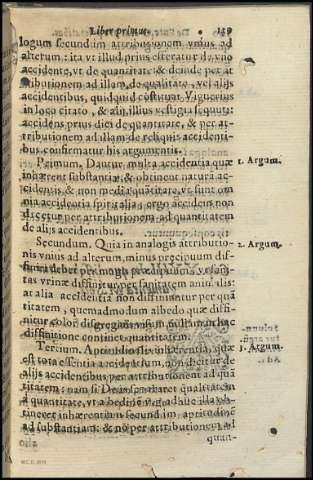 Liber primus. 139
logum secundum attributionem vnius ad
alterum: ita vt illud prius efferatur de vno
accidente, vt de quantitate & deinde per at
tributionem ad illam, de qualitate, vel alijs
accidentibus, quidquid Viguerius
in loco citato, & alij, illius vestigia sequuti:
accidens prius dici de quantitate, & per at-
tributionem ad illam de reliquis accidenti-
bus confirmatur his argumentis.
Primum. Dantur multa accidentia quæ 1. Argum.
inhærent substantiæ, & obtinent naturā ac-
cidentis, & non media quātitate, vt sunt om
nia accidentia spiritalia: ergo accidens non
dicetur per attributionem ad quantitatem
de alijs accidentibus.
Secundum. Quia in analogis attributio- 2. Argum.
nis vnius ad alterum, minus præcipuum dif-
debet per magis præcipuum, vt
tas vrinæ diffinitur per sanitatem animalis:
at alia accidentia non diffiniuntur per quā
titatem, quemadmodum albedo quæ diffi-
nitur color disgregatiuus
diffinitione continet quantitatem.
Tertium. Aptitudinalis inhærentia, quæ 3. Argum.
est tota essentia accidentium, non dicitur de
alijs accidentibus per attributionem ad quā
titatem: nam si Deus separaret qualitatem
à quantitate, vt albedinem, adhuc illa
tineret inhærentiam secundùm aptitudinē
ad substantiam: & nō per attributionem ad
quan-